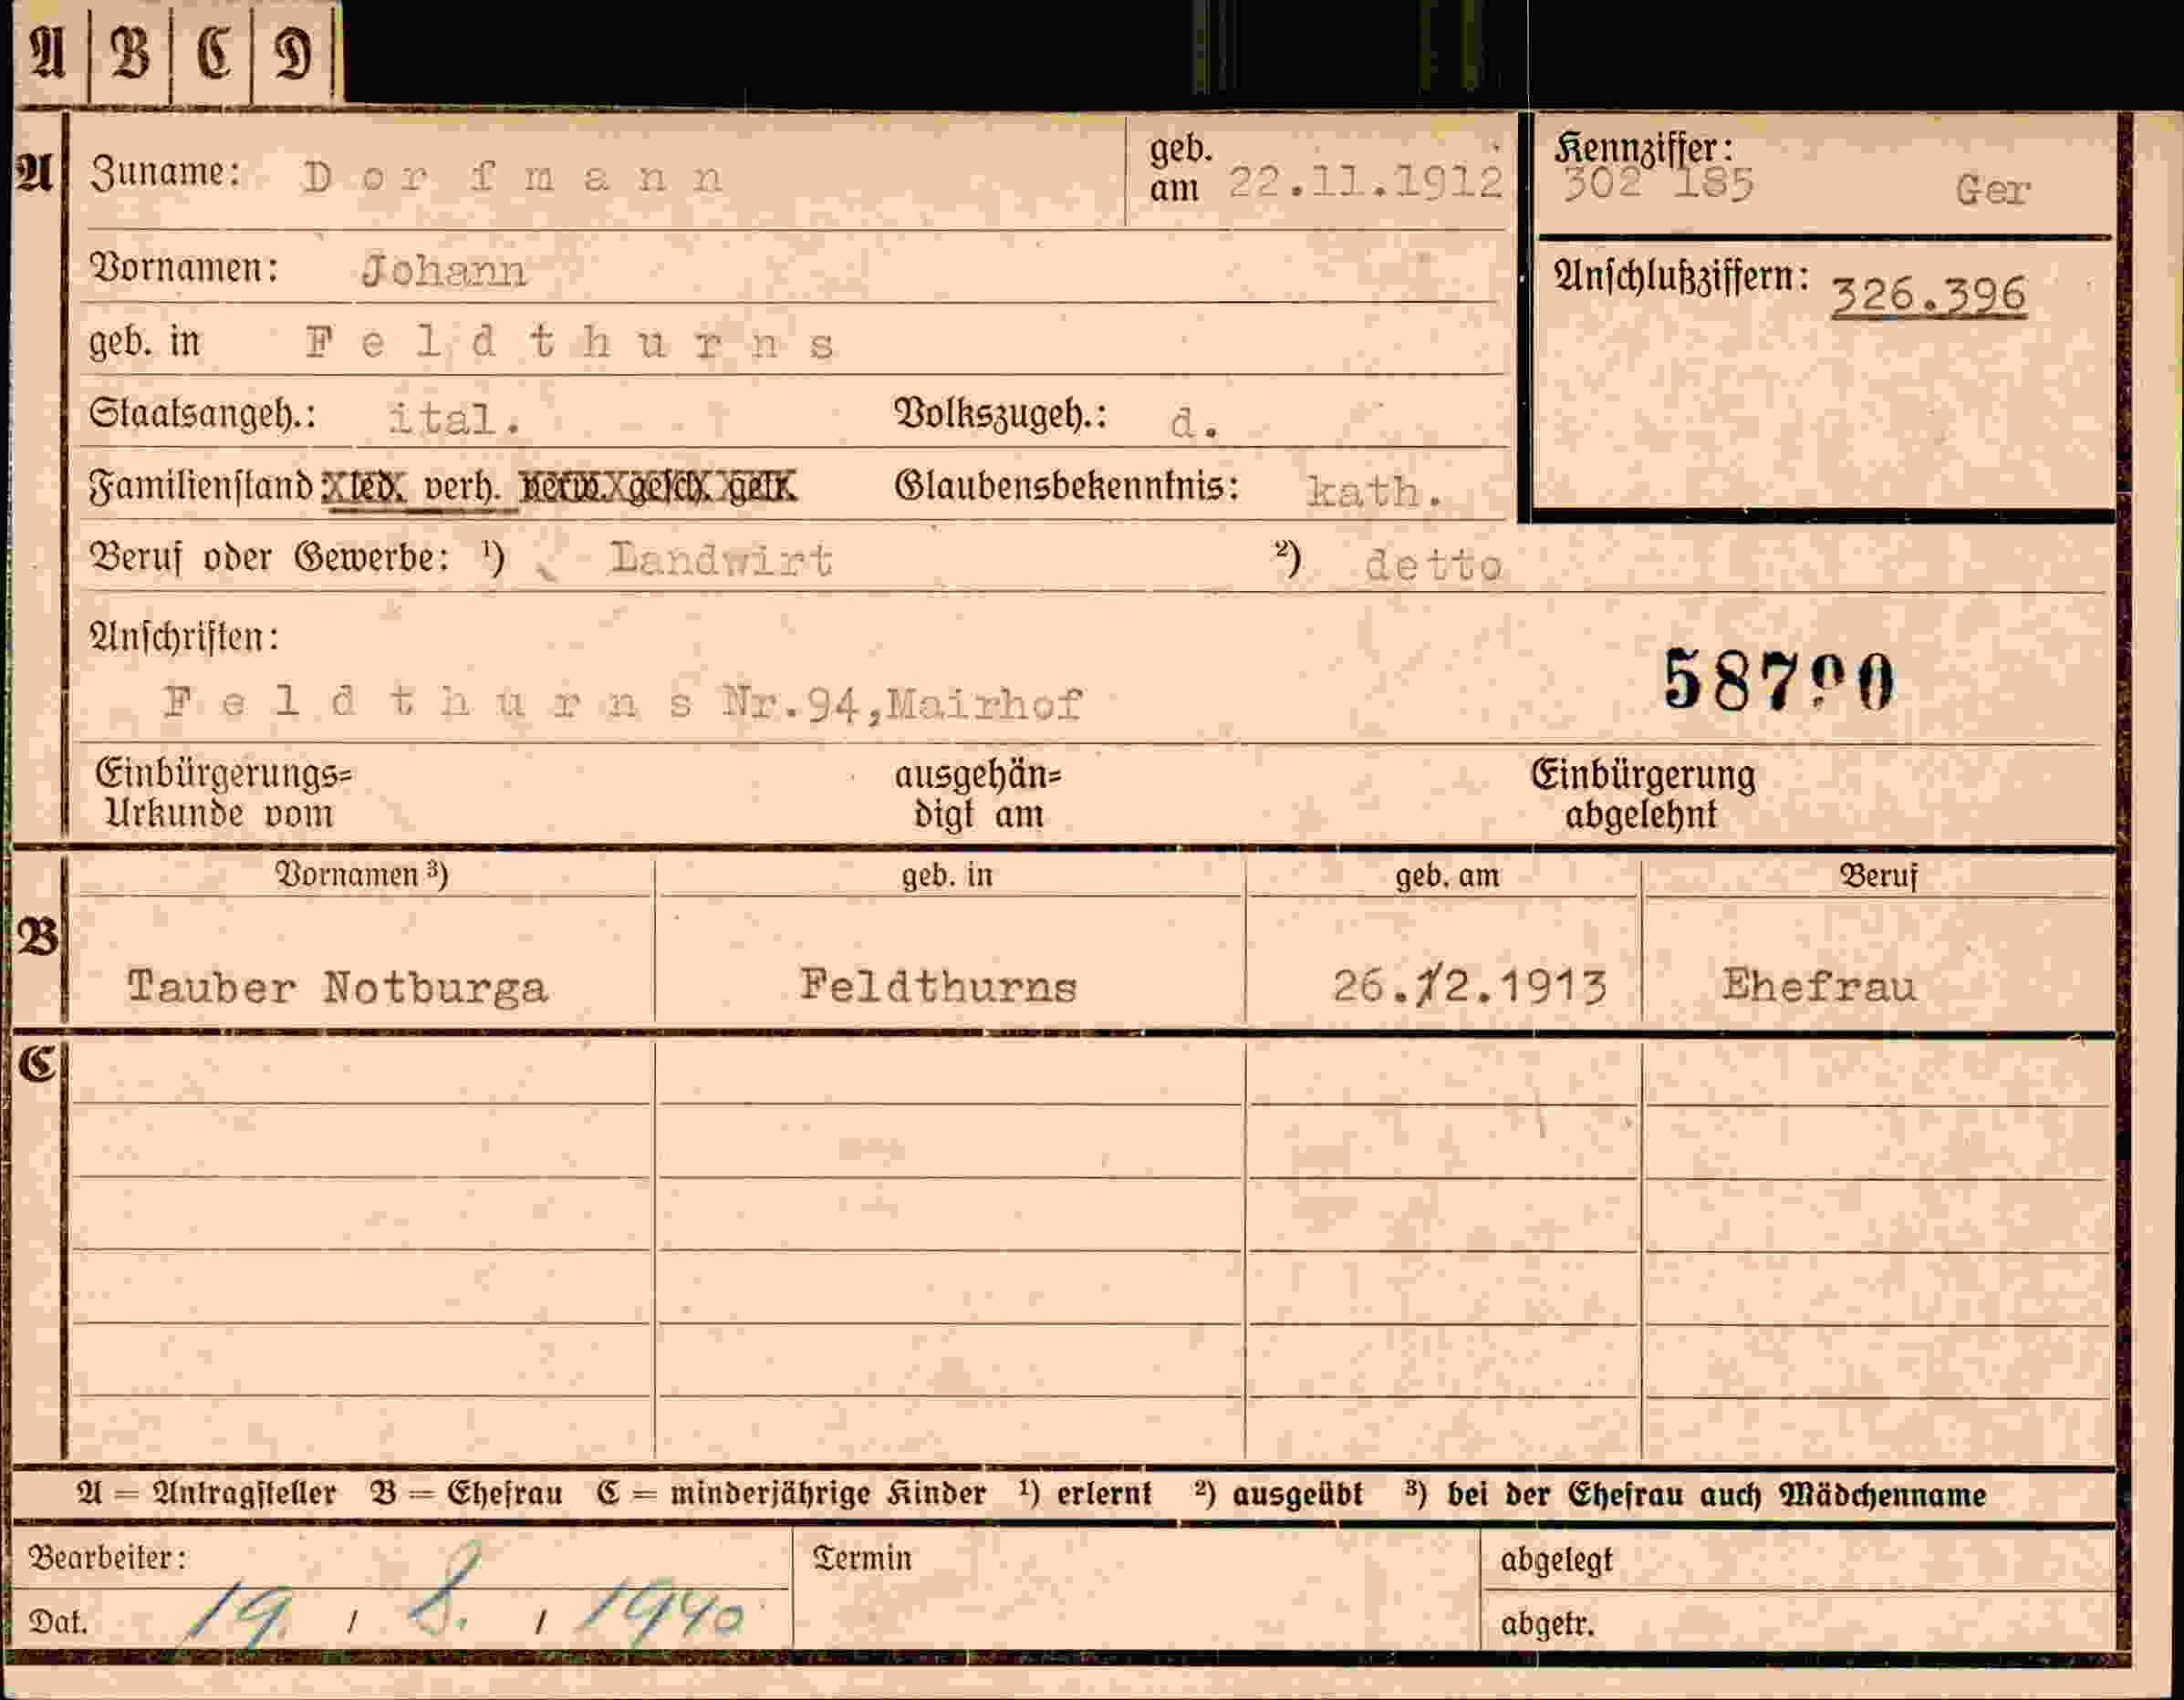 A B C D
A Zuname: Dorfmann geb. am 22.11.1912 Kennziffer: 302 185 Ger
Vornamen: Johann Anschlußziffern: 326.396
geb. in Feldthurns
Staatsangeh.: ital. Volkszugeh.: d.
Familienstand led. verh. verw. gesch. getr. Glaubensbekenntnis: kath.
Beruf oder Gewerbe: ¹) Landwirt ²) detto
Anschriften:
Feldthurns Nr.94,Mairhof 58790
Einbürgerungs= ausgehän= Einbürgerung
Urkunde vom digt am abgelehnt
Vornamen ³) geb. in geb. am Beruf
B Tauber Notburga Feldthurns 26.12.1913 Ehefrau
C
A = Antragsteller B = Ehefrau C = minderjährige Kinder ¹) erlernt ²) ausgeübt ³) bei der Ehefrau auch Mädchenname
Bearbeiter: Termin abgelegt
Dat. 19. / 8. / 1940 abgetr.